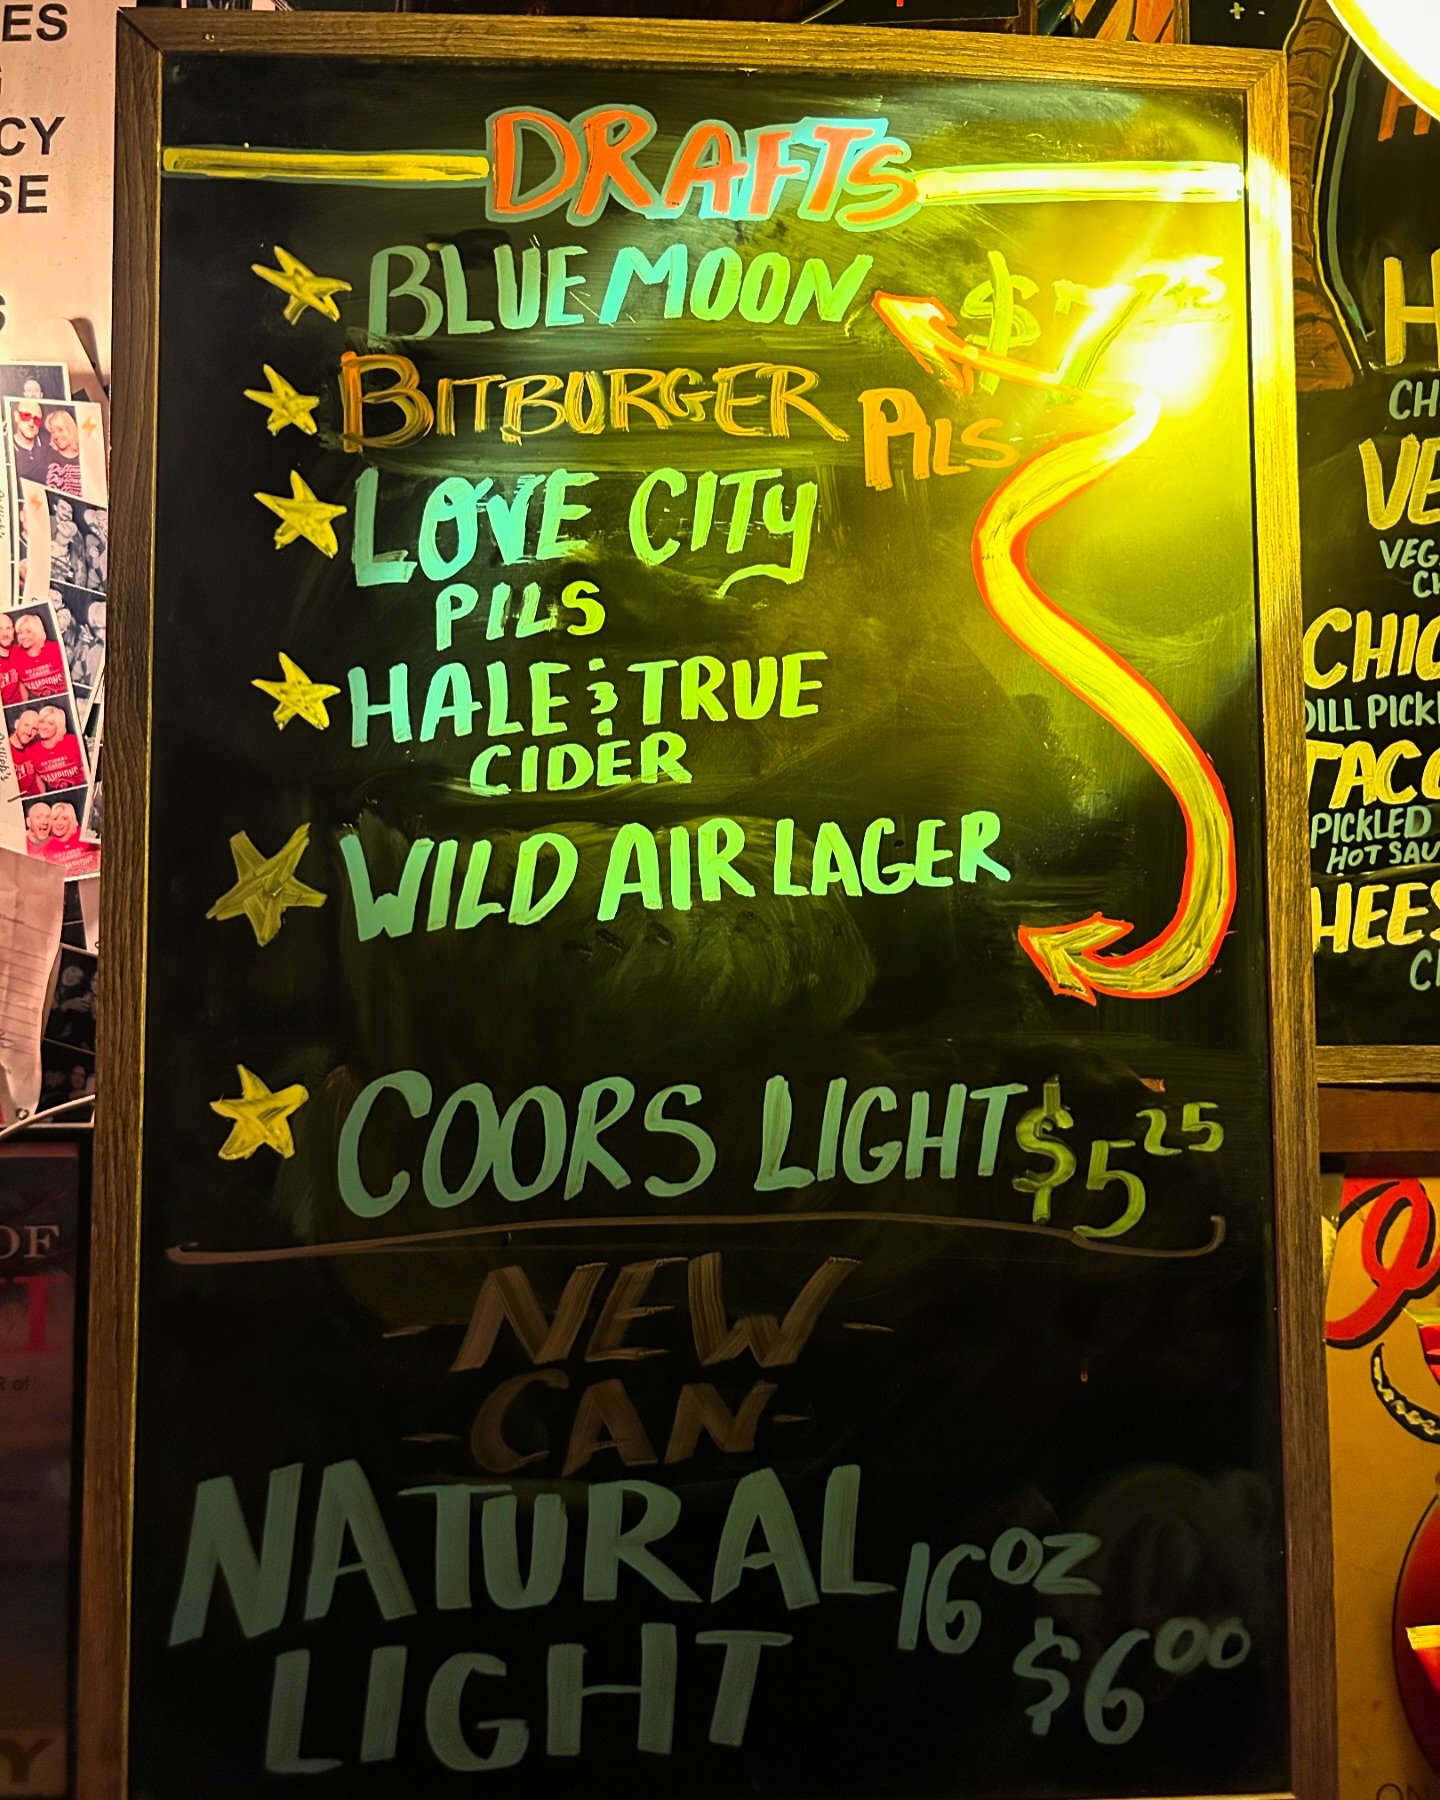 DRAFTS
BLUE MOON $7.25
BITBURGER PILS
LOVE CITY
PILS
HALE & TRUE
CIDER
WILD AIR LAGER
COORS LIGHT $5.25
-NEW-
-CAN-
NATURAL 16 OZ
LIGHT $6.00
ES
CY
SE
OF
CH
VE
VEG
CHIC
DILL PICK
TACO
PICKLED
HOT SAU
HEES